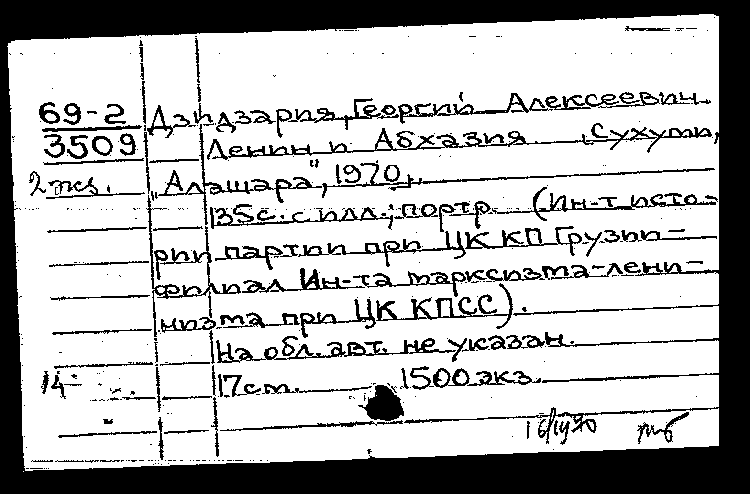 69-2 Дзидзария, Георгий Алексеевич.
3509 Ленин и Абхазия. Сухуми,
2 экз. "Алашара", 1970.
135с. с илл.; портр. (Ин-т исто-
рии партии при ЦК КП Грузии-
филиал Ин-та марксизма-лени-
низма при ЦК КПСС).
На обл. авт. не указан.
14 17см. 1500 экз.